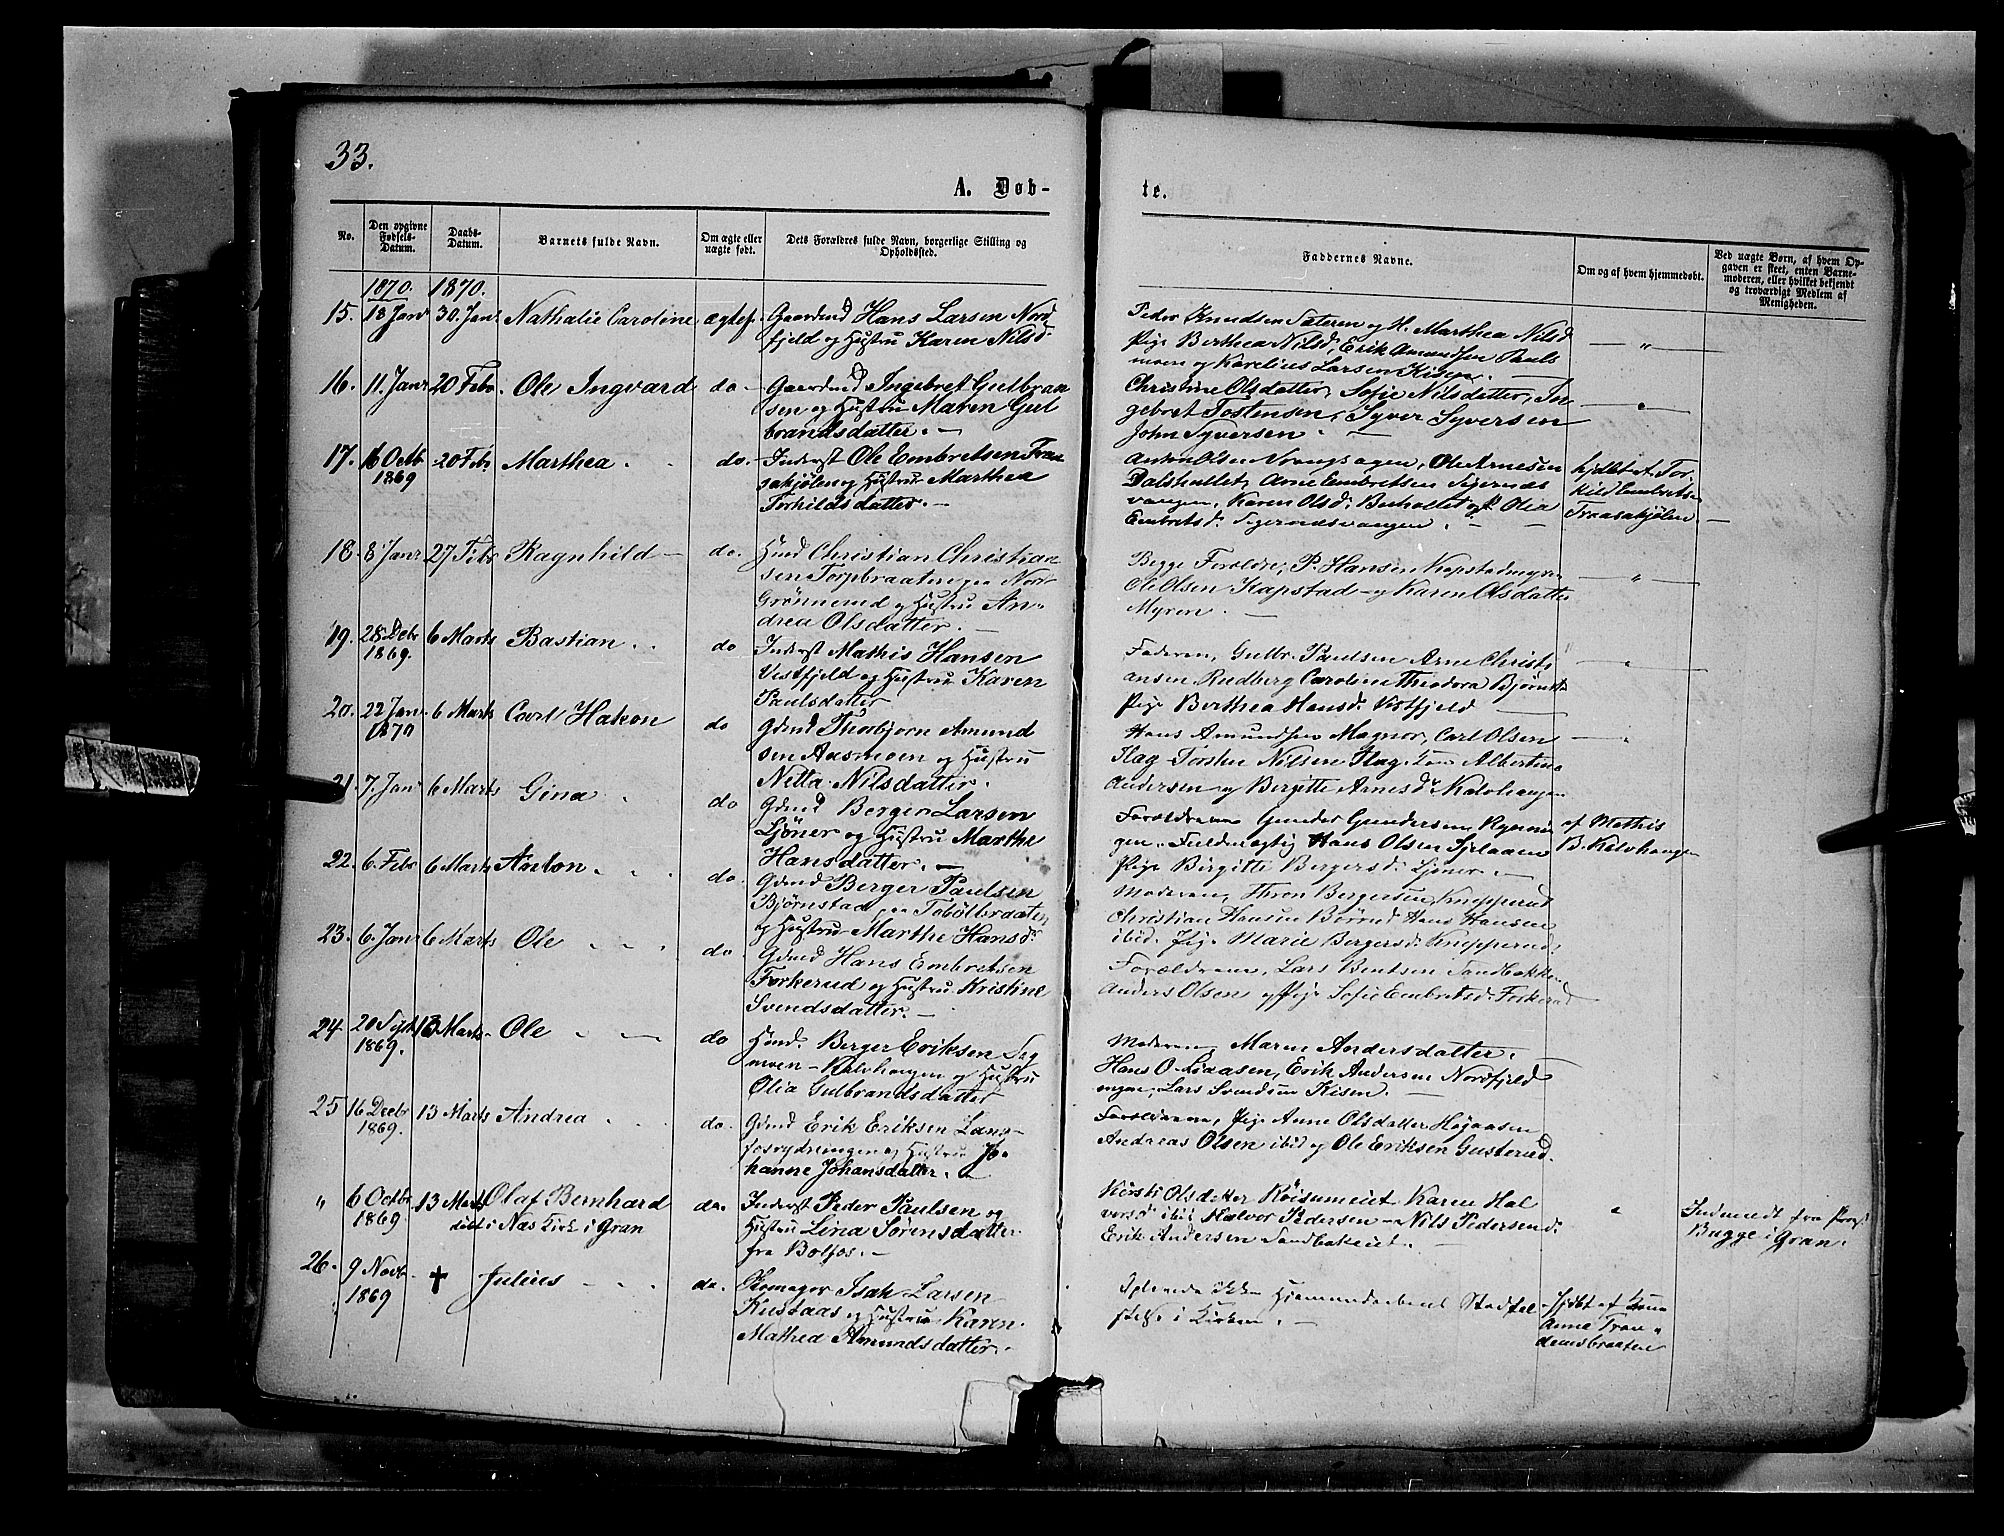 33.
A. Døb-
te.
No.
Den opgivne Fødsels-Datum.
Daabs-Datum.
Barnets fulde Navn.
Om ægte eller uægte født.
Dets Forældres fulde Navn, borgerlige Stilling og Opholdssted.
Faddernes Navne.
Om og af hvem hjemmedøbt.
Ved uægte Børn, af hvem Opgaven er skeet, enten Barnemoderen, eller hvilket bekjendt og troværdigt Medlem af Menigheden.
1870. 1870.
15. 18 Janr 30. Janr Nathalie Caroline ægtef. Gaardmd Hans Larsen Nord
fjeld og Hustru Karen Nilsd.
Peder Knudsen Sæteren og H. Marthea Nilsd
Pige Berthea Nilsd, Erik Amundsen Pauls
moen og Karelius Larsen Kisen. —
16. 11. Janr 20 Febr. Ole Ingvard do- Gaardmd Ingebret Gulbran
sen og Hustru Maren Gul
brandsdatter. —
Christine Olsdatter, Sofie Nilsdatter, In
gebret Tostensen, Syver Syversen
John Syversen. —
17. 16 Octb 1869 20 Febr Marthea do. Inderst Ole Embretsen Traa
sakjølen og Hustru Marthea
Torkildsdatter. —
Olsen, Ole Arnesen
Dalsholtet, Arne Embretsen
vangen, Karen Olsd. og P. Olia
Embretsd.
hjdbt af Tor
kild Embretsen
Traasakjølen. —
18. 8 Janr 27 Febr Ragnhild — do. Hmd Christian Christian
sen Torpbraaten paa Nord
Grønnerud og Hustru An-
drea Olsdatter. —
Begge Forældre, P. Hansen Kapstadmyren
Ole Olsen Kapstad og Karen Olsdatter
Myren. —
19. 28 Debr 1869. 6 Marts Bastian do Inderst Mathis Hansen
Vestfjeld og Hustru Karen
Paulsdatter
Faderen, Gulbr. Paulsen Arne Christi
ansen Rudberg Caroline Theodora
Pige Berthea Hansd. Vestfjeld —
20. 22 Janr 1870 6 Marts Carl Hakon do Gdmd Thorbjørn Amund
sen Aasmoen og Hustru
Netta Nilsdatter.
Hans Amundsen Magnor, Carl Olsen
Hag Torsten Nilsen Hag, Albertine
Andersen og Birgitte Arnesd. Kalvhaugen
21. 7. Janr 6 Marts Gina do Gdmd Berger Larsen
Ljøner og Hustru Marthe
Hansdatter. —
Forældrene Gunder Gundersen
gen. Fuldmægtig Hans Olsen
Pige Birgitte Bergersd. Ljøner. —
af Mathis
B. Kalvhaugen
22. 6. Febr 6 Marts Anton do Gdmd Berger Paulsen
Bjørnstad paa Tobølbraaten
og Hustru Marthe Hansdr
Moderen, Thron Bergersen Knapperud
Christian Hansen Børrud Hans Hansen
ibid. Pige Marie Bergersd. Knapperud.
23. 6. Janr 6 Marts Ole do Gdmd Hans Embretsen
Forkerud og Hustru Kristine
Svendsdatter. —
Forældrene, Lars Bentsen Sandbakken
Anders Olsen og Pige Sofie Embretsd. Forkerud
24. 20 Sept 1869. 13 Marts. Ole — do Hmd. Berger Eriksen Sig
moen — Kalvhaugen og Hustru
Olia Gulbrandsdatter
Moderen, Maren Andersdatter,
Hans O. Liaasen, Erik Andersen Nordfjeld
Lars Svendsen Kisen. —
25 16 Decbr 1869. 13 Marts Andrea do. Gdmd Erik Eriksen Lang-
fosrydningen og Hustru Jo-
hanne Johansdatter. —
Forældrene, Pige Anne Olsdatter Højaasen
Andreas Olsen ibid og Ole Eriksen Gusterud.
" 6 Octbr 1869. 13 Mart Olaf Bernhard
døbt i Næs Kirke i Gran
do. Inderst Peder Paulsen og
Hustru Lina Sørensdatter
fra Bolfos. —
Kirsti Olsdatter Karen Hal
vorsd. ibid Halvor Pedersen — Nils Pedersen
Erik Andersen Sandbakken. —
Indmeldt fra Præst
Bugge i Gran.
26. 9 Novb 1869 ✝ Julius do. Skomager Isak Larsen
Kustaas og Hustru Karen
Mathea Amundsdatter. —
Oplevede ikke Hjemmedaabens Stadfæ
stelse i Kirken. —
Hjdbt af Kone
Anne Tran
demsbraaten